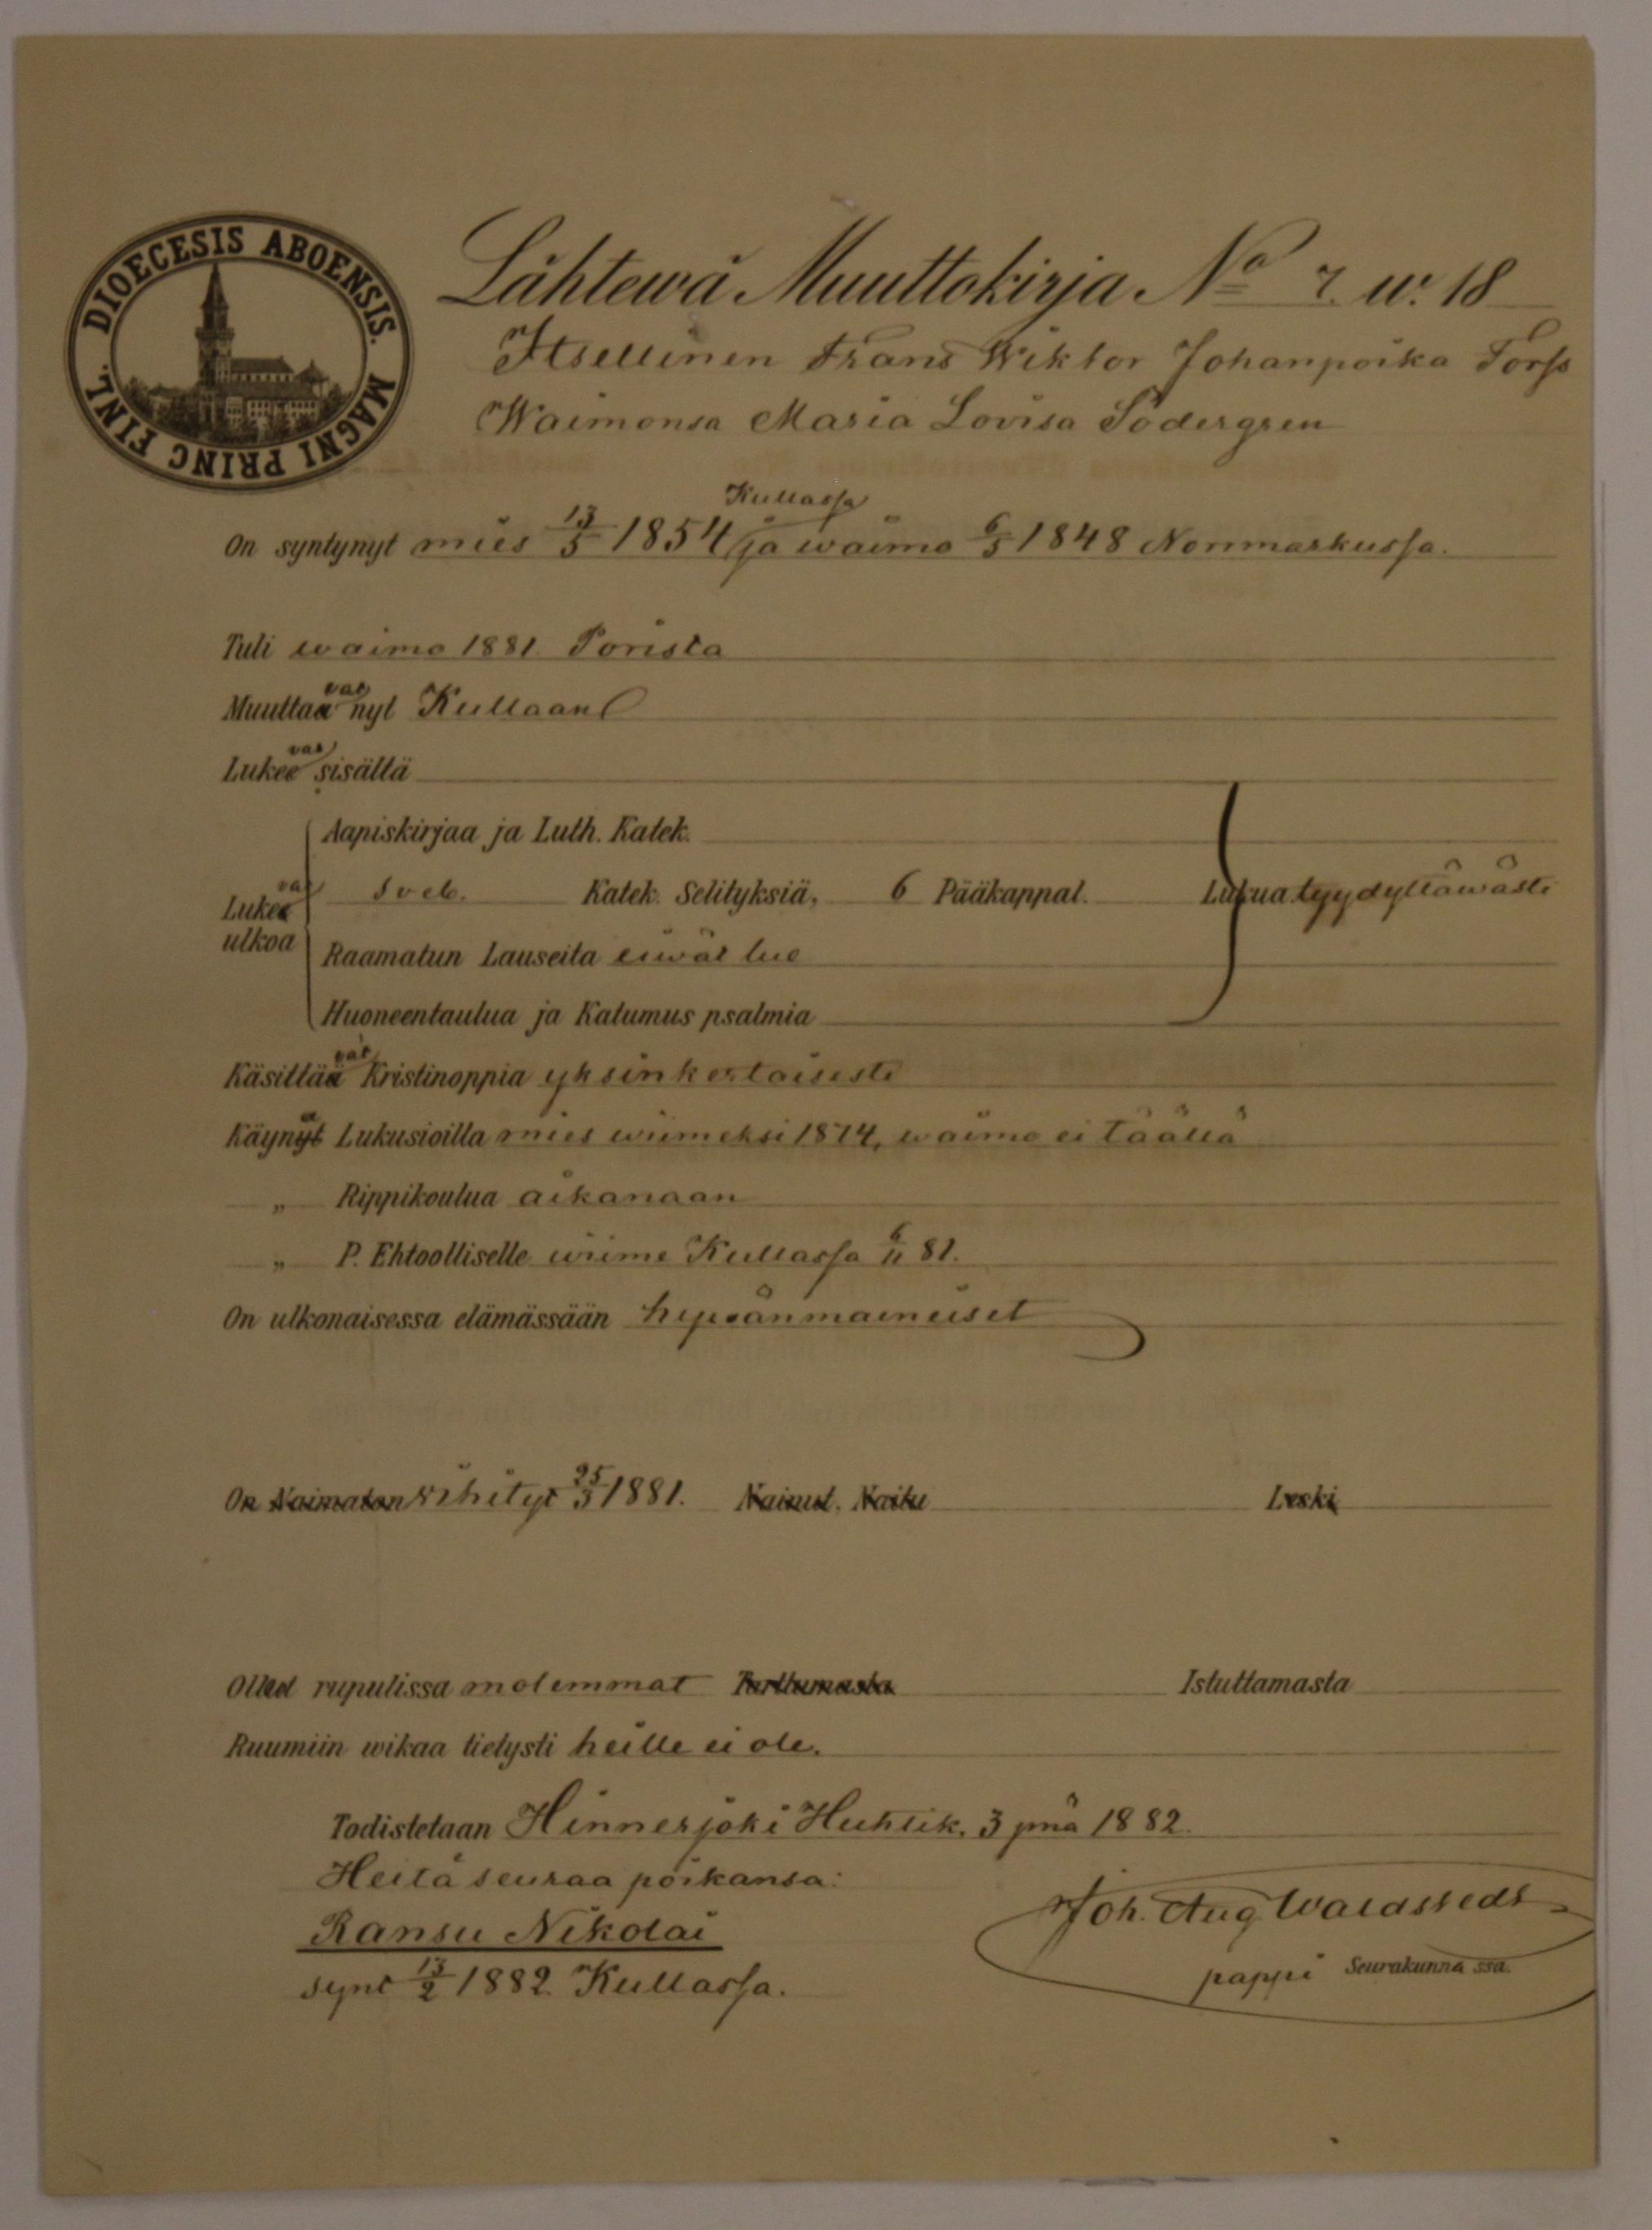 DIOECESIS ABOENSIS. MAGNI PRINC FINL.
Lähtewä Muuttokirja No 7. w. 18
Itsellinen Frans Wiktor Johanpoika Forss
Waimonsa Maria Lovisa Södergren
Kullassa
On syntynyt mies 13/5 1854 ja waimo 6/5 1848 Normarkussa.
Tuli waimo 1881. Porista
Muuttaavat nyt Kullaan
Lukeevat sisältä
Aapiskirjaa ja Luth. Katek.
Lukeevat ulkoa Sveb. Katek. Selityksiä, 6 Pääkappal. Lukua tyydyttäwästi
Raamatun Lauseita eiwät lue
Huoneentaulua ja Katumus psalmia
Käsittäävät Kristinoppia yksinkertaisesti
Käynyt Lukusioilla mies wiimeksi 1874, waimo ei täällä
„ Rippikoulua aikanaan
„ P. Ehtoolliselle wiime Kullassa 6/11 81.
On ulkonaisessa elämässään hywänmaineiset
On Naimaton Wihityt 25/3 1881. Nainut. Naitu Leski
Olleet rupulissa molemmat Tarttumasta Istuttamasta
Ruumiin wikaa tietysti heille ei ole.
Todistetaan Hinnerjoki Huhtik. 3 pnä 1882.
Heitä seuraa poikansa:
Ransu Nikolai
synt 13/2 1882. Kullassa.
Joh. Aug. Waldstedt
pappi Seurakunna ssa.